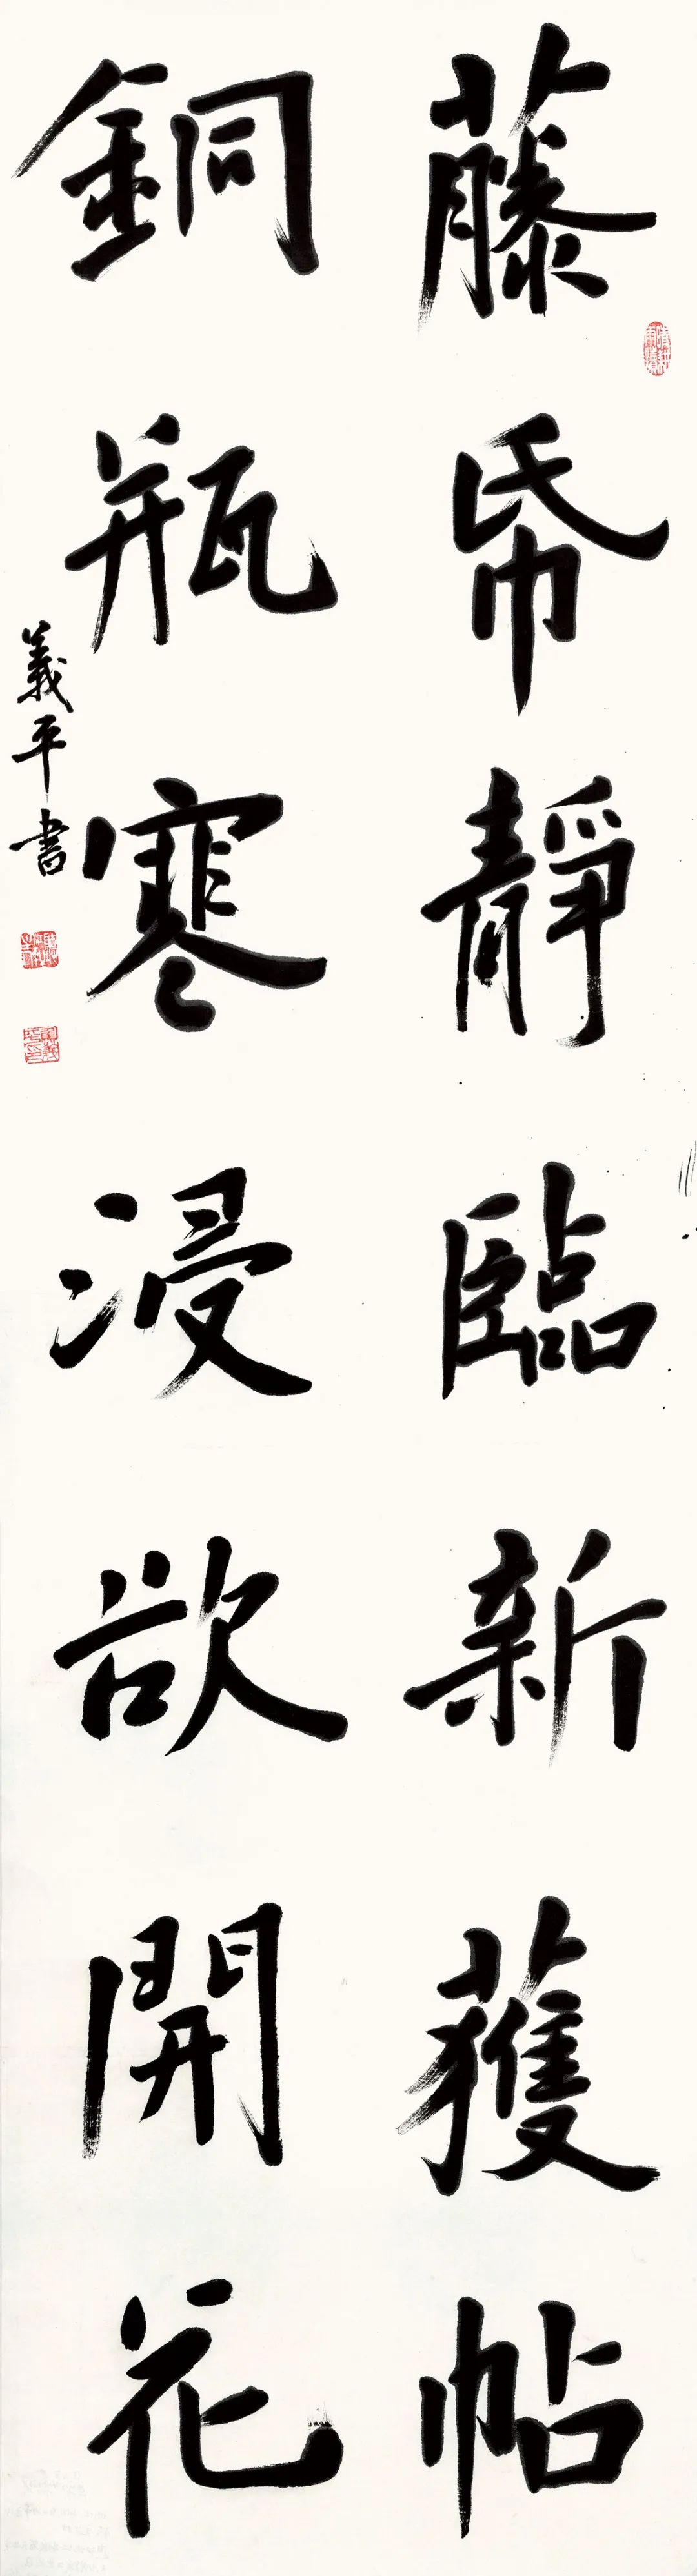 藤帋靜臨新獲帖
銅瓶寒浸欲開花
義平書